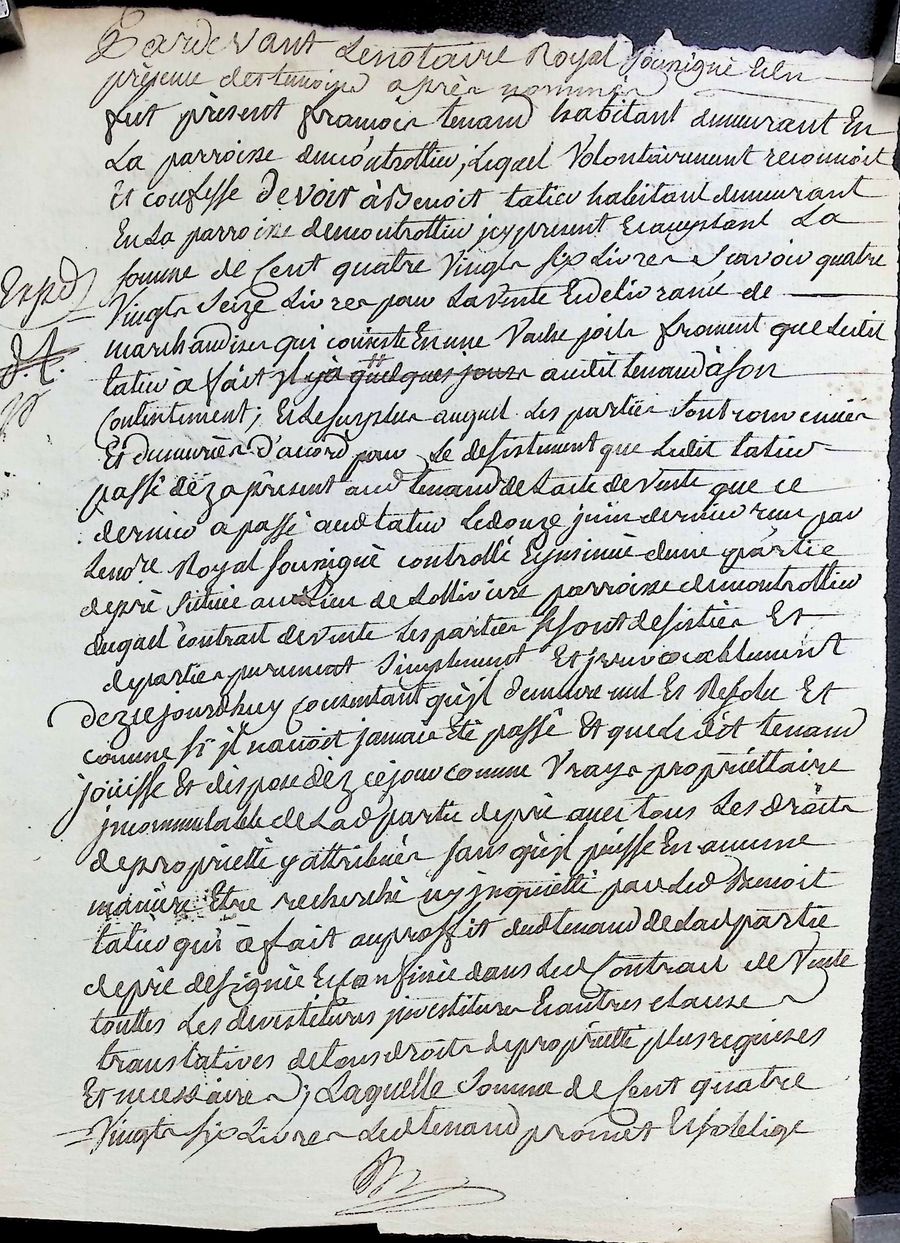 Pardevant Lenotaire Royal soussigné Et En
présence destemoins après nommés
fut présent francois tenand habitant demeurant En
La parroisse demontrottier, Lequel Volontairement reconnoit
Et confesse devoir à Benoit tatier habitant demeurant
En La parroisse demontrottier jcy present Et acceptant La
somme de Cent quatre Vingts six Livres Scavoir quatre
Expd
Vingts Seize Livres pour La Vente Et delivrance de
marchandises qui consiste En une Vache poils froment que Ledit
tatier à fait jl y à quelques jours audit tenand à son
Contentement; Et Lesurplus auquel Les parties sont convenues
Et demeurées d'accord pour Le desistement que Ledit tatier
passe dèz à présent aud tenand de Lacte de Vente que ce
dernier a passé aud tatier Ledouze juin dernier reçu par
Lenore Royal soussigné controllé Et jnsinué dune partie
depré Située au Lieu de Lollivière parroisse demontrottier
duquel contrat devente Les parties se sont desistées Et
departies purement Simplement Et jrrevocablement
dezcejourdhuy consentant qu'jl demeure nul Et Resolu Et
comme si jl navoit jamais Eté passé Et que Ledit tenand
jouisse Et dispose dèz cejour comme Vrays propriettaire
jncommutable de Lad partie depré avec tous Les droits
depropriettè y attribués sans qu'jl puisse En aucune
manière Etre recherché ny jnquietté par Led Benoit
tatier qui à fait auproffit dud tenand de Lad partie
depré designée Et confinée dans Led Contrat de Vente
touttes Les devestitures jnvestitures Et autres clauses
translatives de tous droits de propriettè plus requises
Et necessaires; Laquelle Somme de Cent quatre
Vingts six Livres Led tenand promet Et soblige